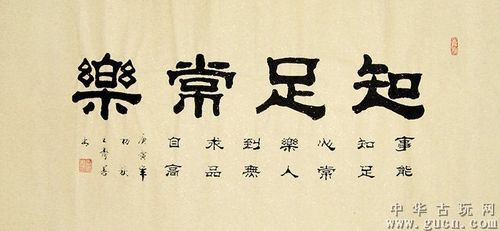 知足常樂
事能
知足
心常
樂人
到無
求品
自高
庚寅年
中华古玩网
www.gucn.com